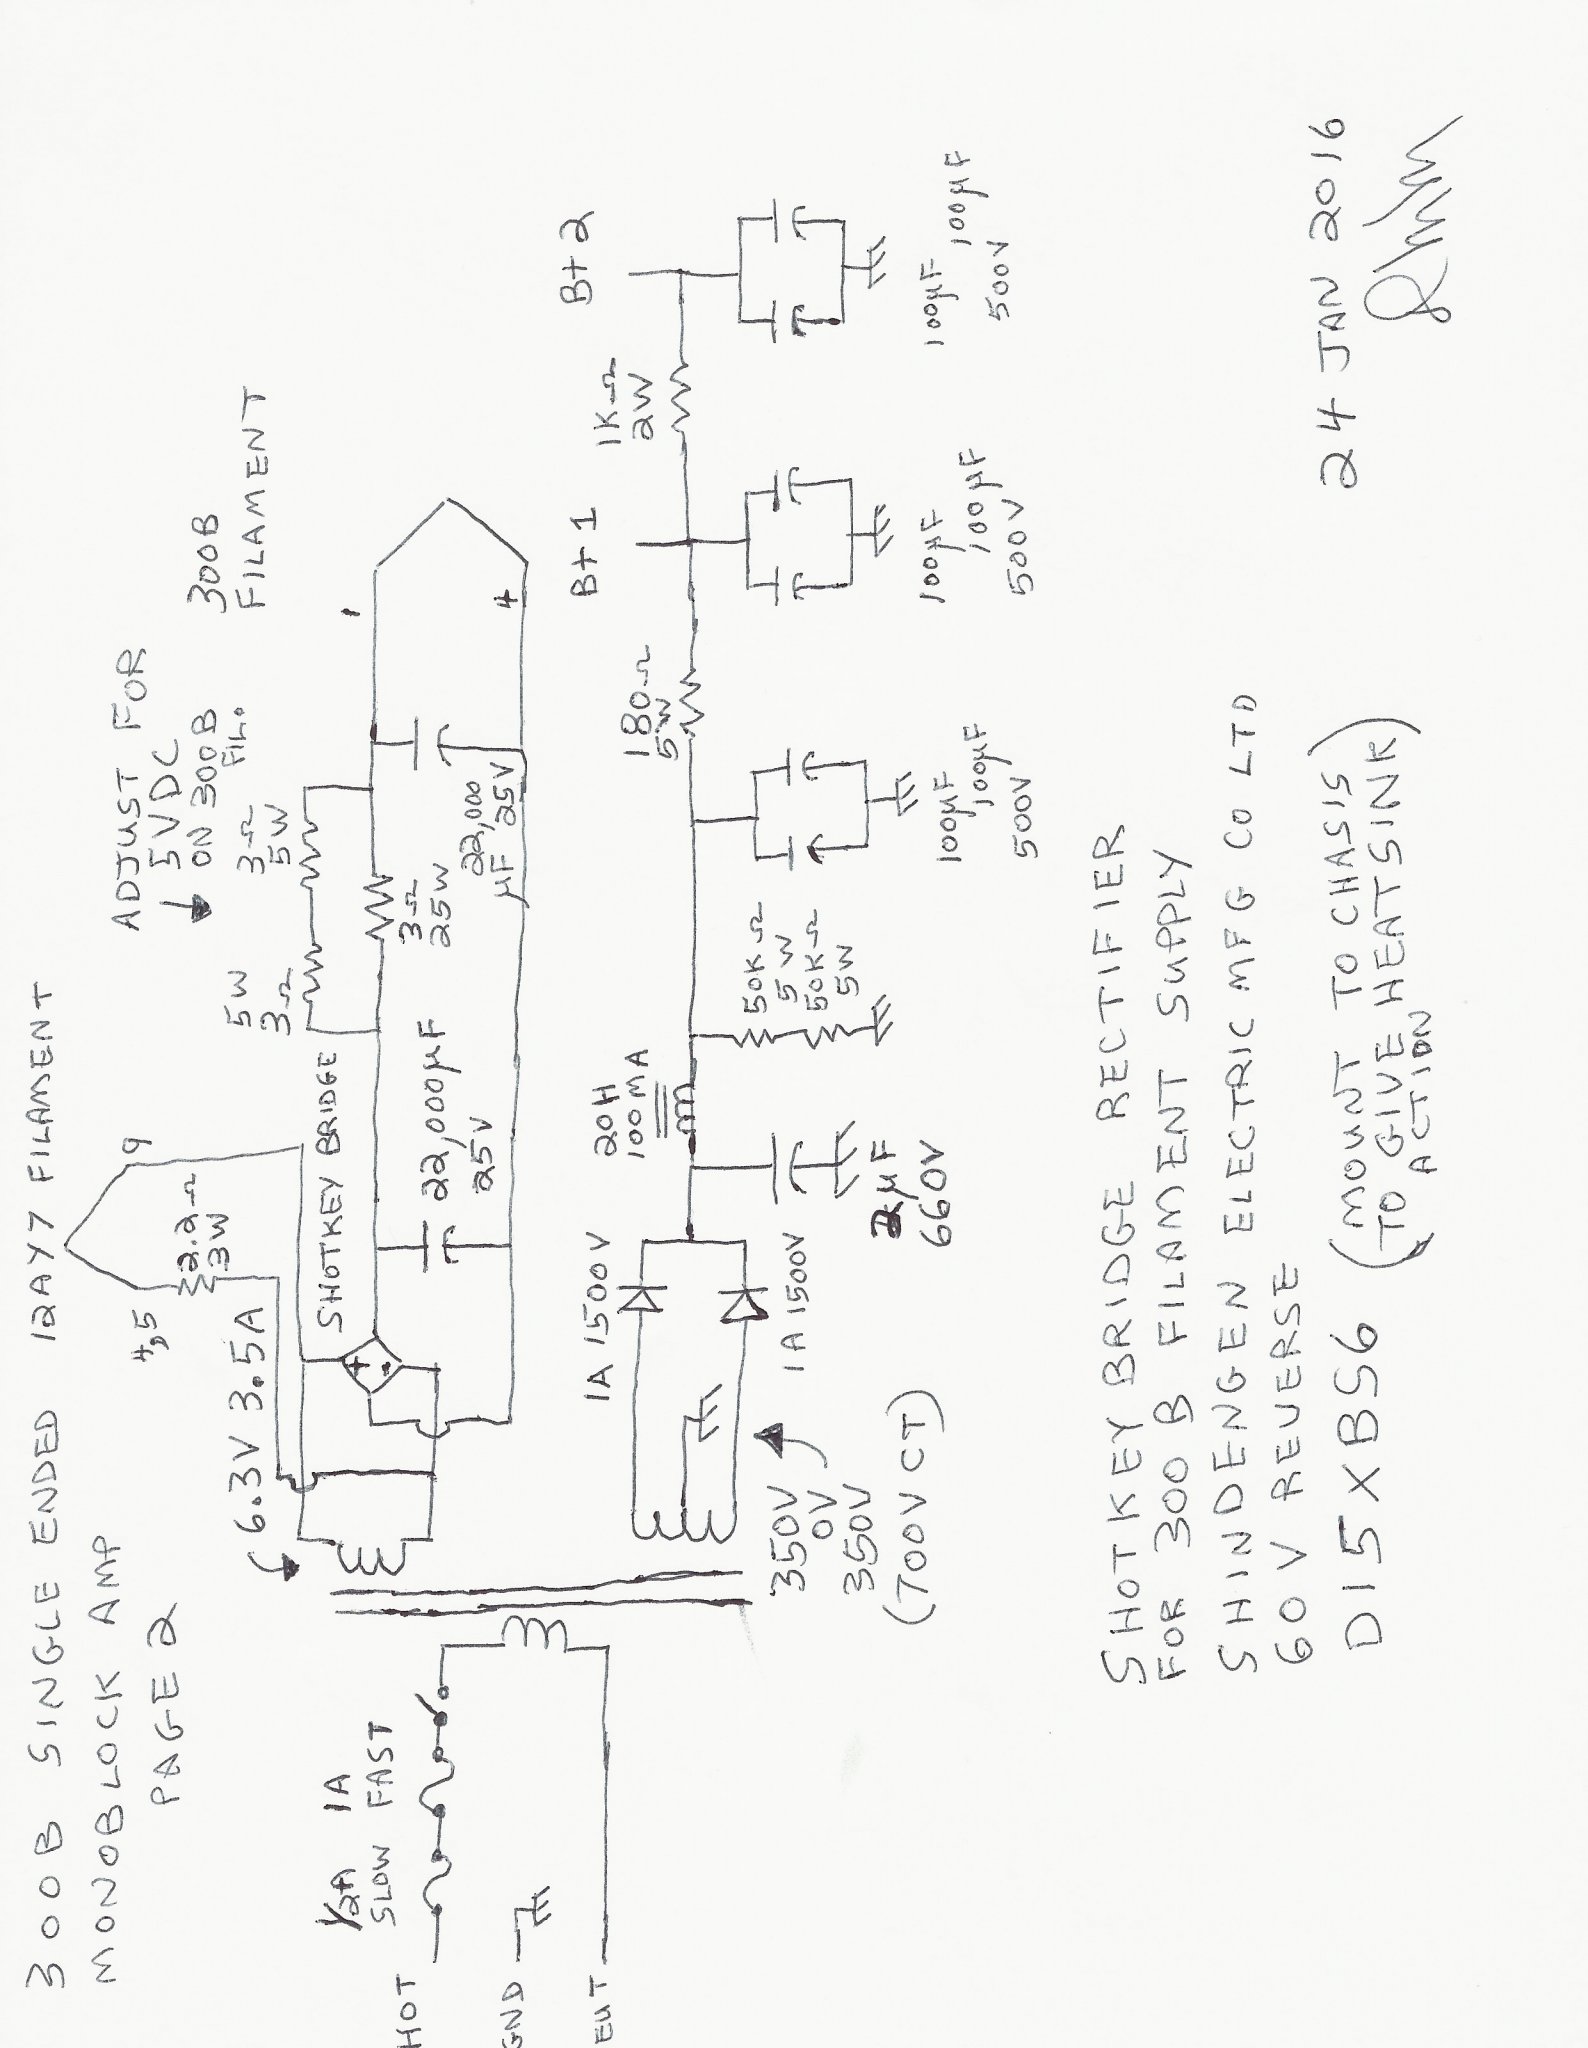 300B SINGLE ENDED
MONOBLOCK AMP
PAGE 2
12AY7 FILAMENT
4,5
9
2.2Ω
3W
6.3V 3.5A
SHOTKEY BRIDGE
+
-
22,000µF
25V
5W
3Ω
3Ω
5W
3Ω
25W
22,000
µF 25V
ADJUST FOR
5VDC
ON 300B
FIL.
300B
FILAMENT
1
4
HOT
GND
EUT
1/2A
SLOW
1A
FAST
350V
0V
350V
(700VCT)
1A 1500V
1A 1500V
2µF
660V
20H
100MA
50KΩ
5W
50KΩ
5W
100µF
100µF
500V
180Ω
5W
B+1
100µF
100µF
500V
1KΩ
2W
B+2
100µF 100µF
500V
SHOTKEY BRIDGE RECTIFIER
FOR 300B FILAMENT SUPPLY
SHINDENGEN ELECTRIC MFG CO LTD
60V REVERSE
D15XBS6 (MOUNT TO CHASIS
TO GIVE HEATSINK)
ACTION
24 JAN 2016